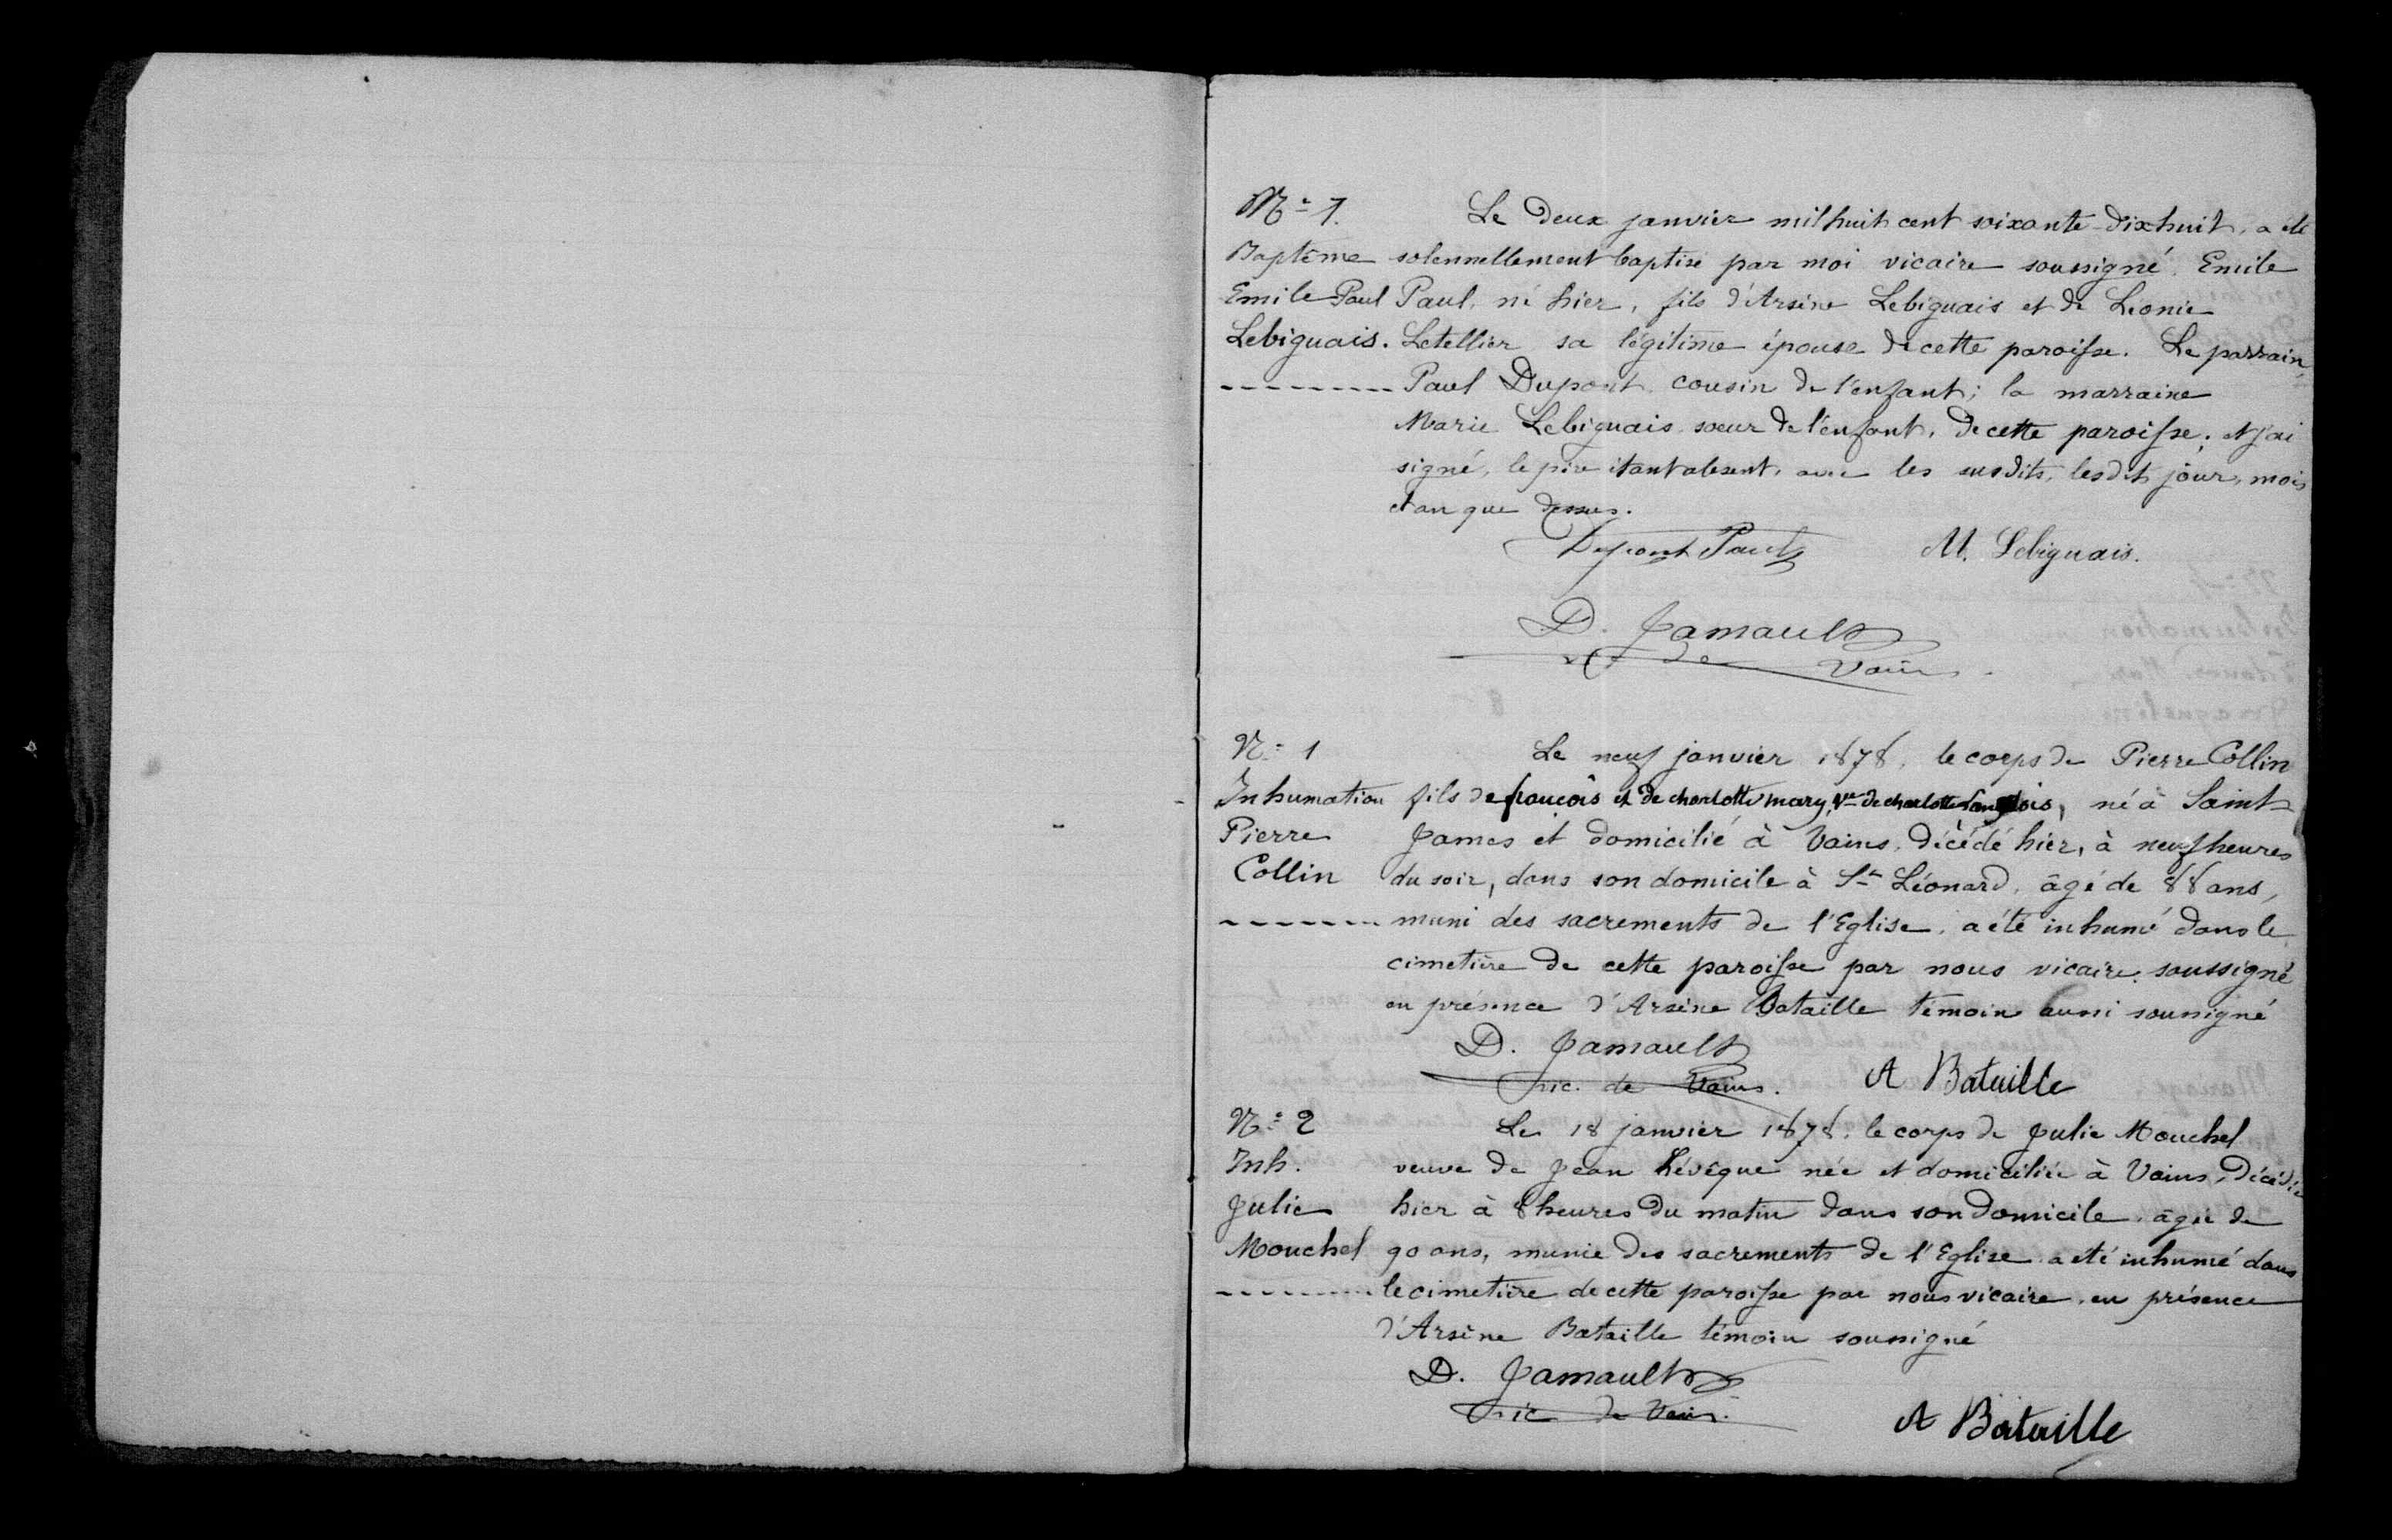 N° 1.
Baptême
Emile Paul
Lebiguais.
Le deux janvier mil huit cent soixante-dix huit, a été
solennellement baptisé par moi vicaire soussigné, Emile
Paul, né hier, fils d'Arsène Lebiguais et de Léonie
Letellier sa légitime épouse de cette paroisse. Le parrain
Paul Dupont, cousin de l'enfant; la marraine
Marie Lebiguais, soeur de l'enfant, de cette paroisse; et j'ai
signé, le père étant absent, avec les susdits, les dits jour, mois
et an que dessus.
Dupont Paul M. Lebiguais.
D. Jamault
vic de Vains
N° 1
Inhumation
Pierre
Collin
Le neuf janvier 1878, le corps de Pierre Collin
fils de françois et de charlotte mary, Vf de charlotte Langlois, né à Saint-
James et domicilié à Vains, décédé hier, à neuf heures
du soir, dans son domicile à St Léonard, âgé de 88 ans,
muni des sacrements de l'Eglise, a été inhumé dans le
cimetière de cette paroisse par nous vicaire soussigné
en présence d'Arsène Bataille témoin aussi soussigné
D. Jamault
vic. de Vains. A Bataille
N° 2
Inh.
Julie
Mouchel
Le 18 janvier 1878, le corps de Julie Mouchel
veuve de Jean Lévêque née et domiciliée à Vains, décédée
hier à 8 heures du matin dans son domicile, âgée de
90 ans, munie des sacrements de l'Eglise a été inhumé dans
le cimetière de cette paroisse par nous vicaire, en présence
d'Arsène Bataille témoin soussigné
D. Jamault
vic de Vains.
A Bataille